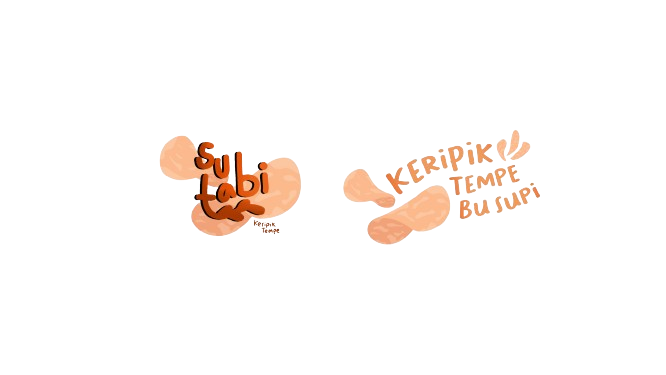 su
tabi
Keripik
Tempe
KERiPiK
TEMPE
BU SUPi